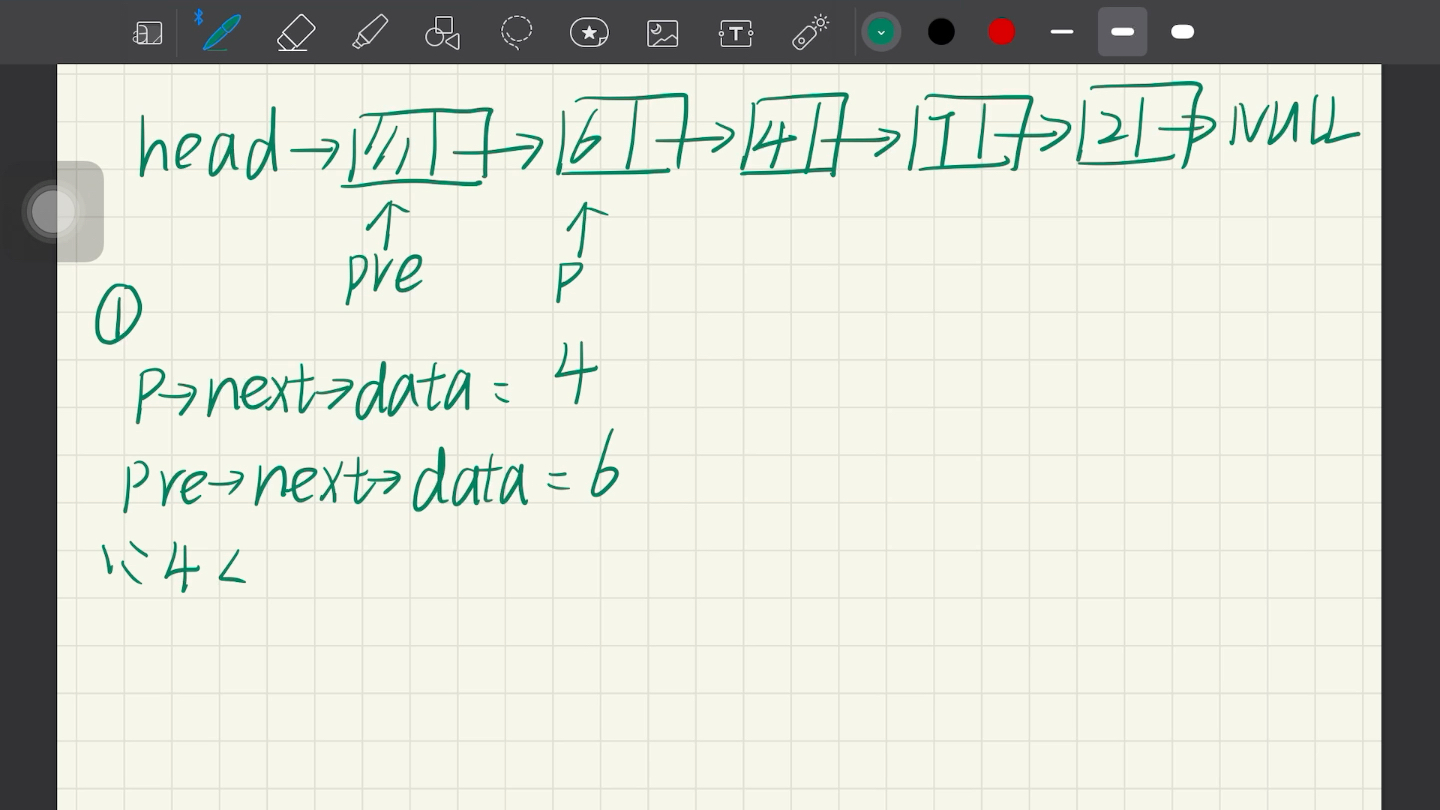 head→ → 6 → 4 → 1 → 2 → NULL
pre p
①
p→next→data = 4
pre→next→data = 6
∵ 4 <